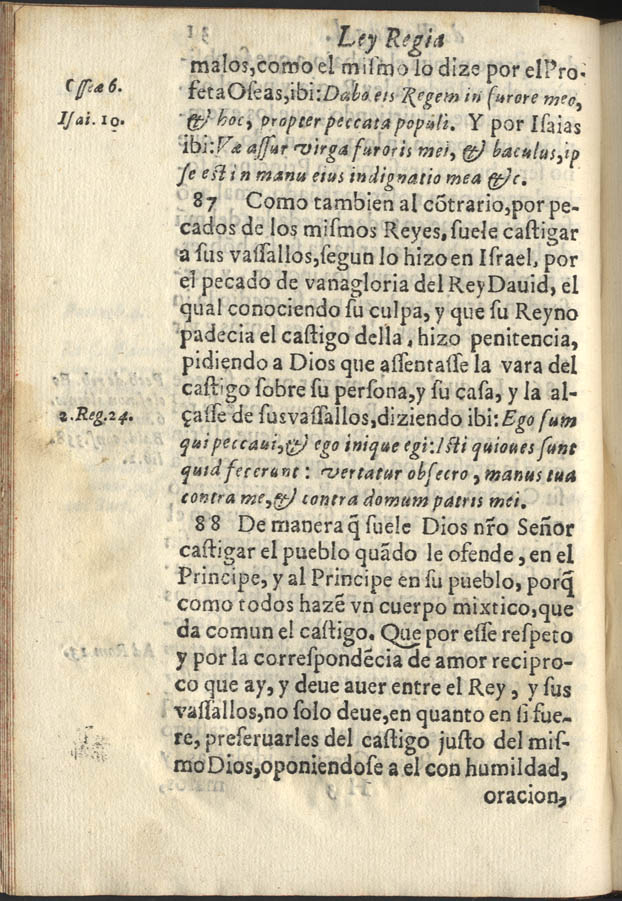 Ley Regia
malos,como el miſmo lo dize por el Pro-
feta Oſeas,ibi:Dabo eis Regem in furore meo,
Oſſeæ 6.
& hoc, propter peccata populi. Y por Iſaias
Iſai. 10.
ibi:Væ aſſur virga furoris mei, & baculus,ip
ſe eſt in manu eius indignatio mea &c.
87 Como tambien al cõtrario,por pe-
cados de los miſmos Reyes, ſuele caſtigar
a sus vaſſallos,ſegun lo hizo en Israel, por
el pecado de vanagloria del Rey Dauid, el
qual conociendo ſu culpa, y que ſu Reyno
padecia el caſtigo della, hizo penitencia,
pidiendo a Dios que aſſentaſſe la vara del
caſtigo ſobre ſu perſona,y ſu caſa, y la al-
çaſſe de ſusvaſſallos,diziendo ibi:Ego ſum
2.Reg.24.
qui peccaui,& ego inique egi:Iſti quioues ſunt
quid fecerunt: vertatur obſecro, manus tua
contra me,& contra domum patris mei.
88 De manera q̃ ſuele Dios nr̃o Señor
caſtigar el pueblo quãdo le ofende, en el
Principe, y al Principe en ſu pueblo, porq̃
como todos hazẽ vn cuerpo mixtico,que
da comun el caſtigo. Que por eſſe reſpeto
y por la correſpondẽcia de amor recipro-
co que ay, y deue auer entre el Rey, y ſus
vaſſallos,no ſolo deue,en quanto en ſi fue-
re, preſeruarles del caſtigo juſto del miſ-
mo Dios,oponiendoſe a el con humildad,
oracion,